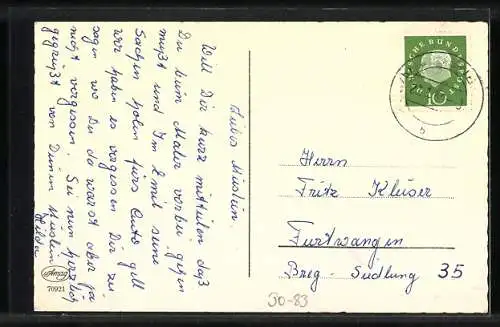 Liebes Mäuslein.
Will Dir kurz mitteilen daß
Du beim Maler vorbei gegen
mußt und Im Emil seine
Sachen holen fürs Auto gell
wir haben es vergessen Dir zu
sagen wo Du da warst aber ja
nicht vergessen. Sei nun herzlich
gegrüßt von Deinem Mäuslein
Hilda
Herrn
Fritz Kleiser
Furtwangen
Breg-Siedlung 35
DEUTSCHE BUNDESPOST
10
b
70921
30-83